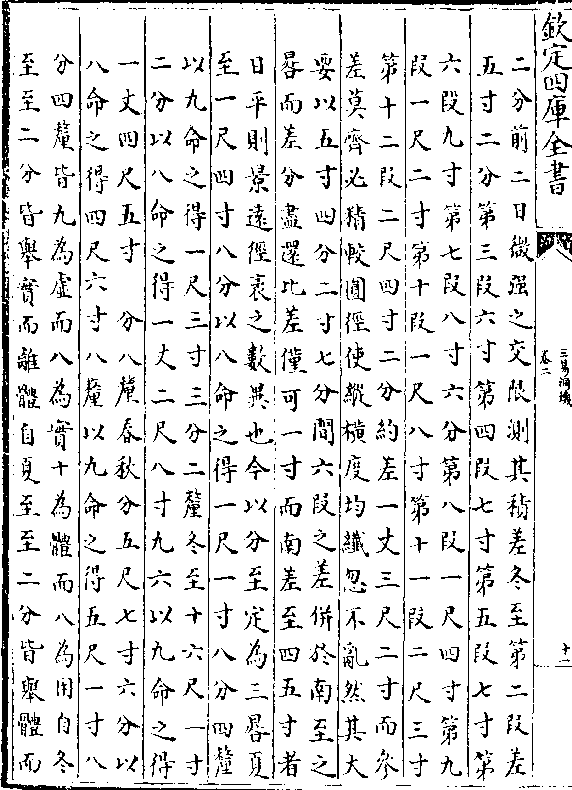 欽定四庫全書
三易洞璣
卷二
十二
二分前二日微强之交限測其積差冬至第二段差
五寸二分第三段六寸第四段七寸第五段七寸第
六段九寸第七段八寸六分第八段一尺四寸第九
段一尺二寸第十段一尺八寸第十一段二尺三寸
第十二段二尺四寸二分約差一丈三尺二寸而參
差莫齊必精較圓徑使縱橫度均纖忽不亂然其大
要以五寸四分二寸七分間六段之差併於南至之
晷而差分盡還比差僅可一寸而南差至四五寸者
日平則景遠徑衺之數異也今以分至定為三晷夏
至一尺四寸八分以八命之得一尺一寸八分四釐
以九命之得一尺三寸三分二釐冬至十六尺一寸
二分以八命之得一丈二尺八寸九六以九命之得
一丈四尺五寸　分八釐春秋分五尺七寸六分以
八命之得四尺六寸八釐以九命之得五尺一寸八
分四釐皆九為虚而八為實十為體而八為用自冬
至至二分皆舉實而離體自夏至至二分皆舉體而